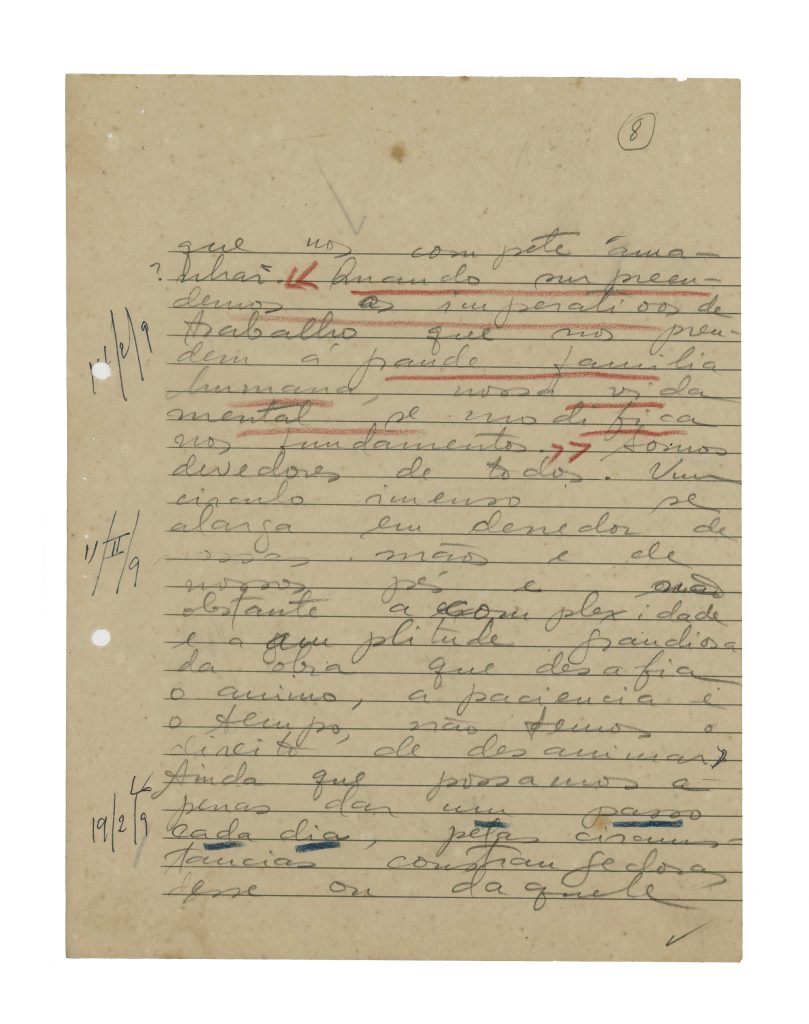 8
que nos compete ama-
? nhar. « Quando surpreen-
demos os imperativos de
trabalho que nos pren-
dem á grande familia
humana, nossa vida
mental se modifica
nos fundamentos. » Somos
devedores de todos. Um
circulo imenso se
alarga em derredor de
nossas mãos e de
nossos pés e não
obstante a complexidade
e a amplitude grandiosa
da obra que desafia
o animo, a paciencia e
o tempo, não temos o
direito de desanimar,
Ainda que possamos a-
penas dar um passo
cada dia, pelas circuns-
tancias constrangedoras
desse ou daquele
11/2/9
11/II/9
19/2/9